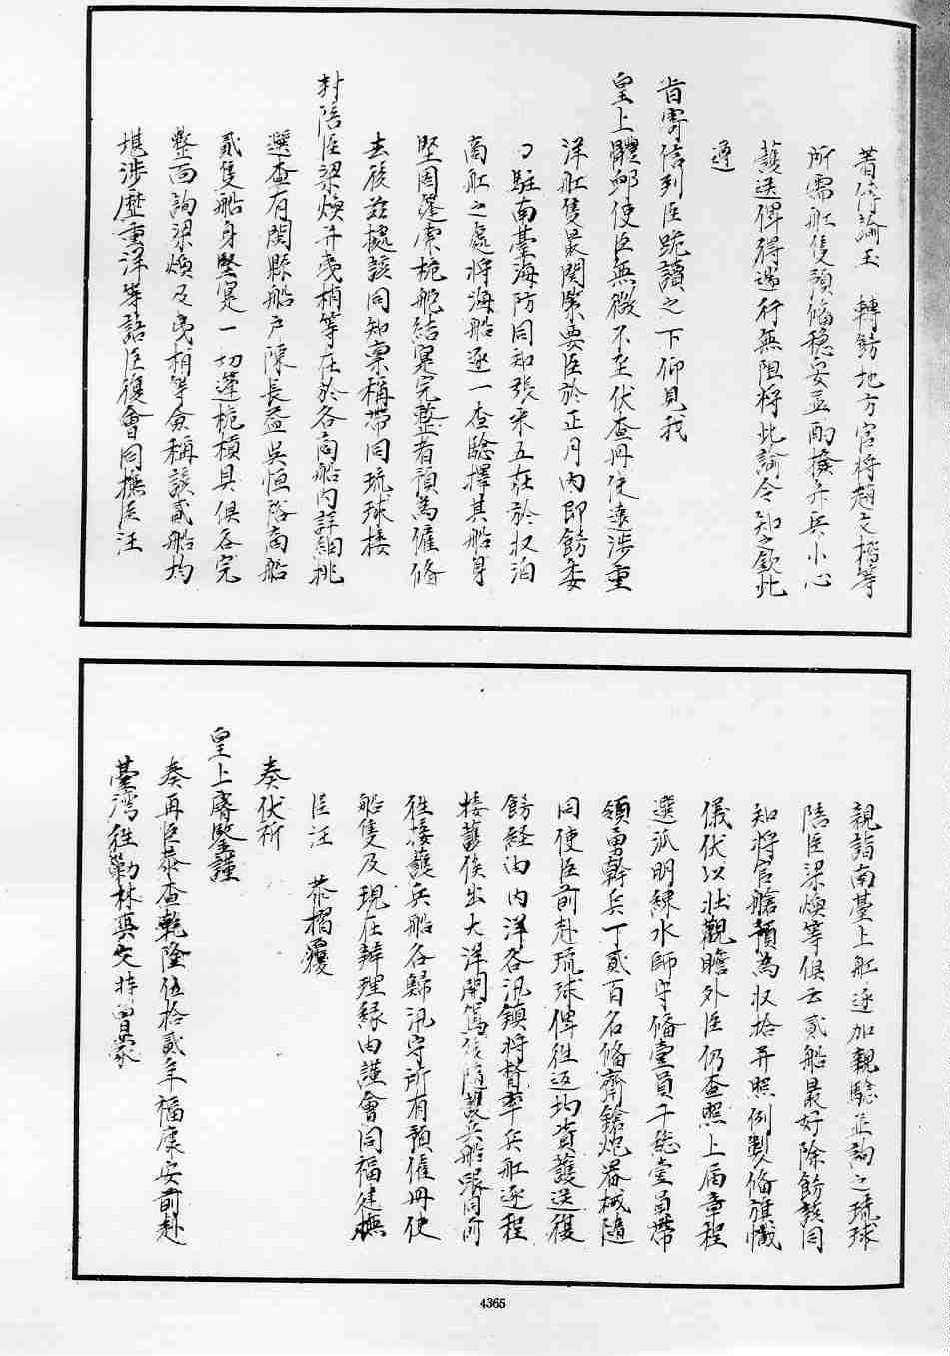 著傳諭玉 轉飭地方官將趙文楷等
所需舡隻預備穩妥並酌撥弁兵小心
護送俾得遄行無阻將此諭令知之欽此
遵
旨寄信到臣跪讀之下仰見我
皇上軆邮使臣無微不至伏查冊使遠涉重
洋舡隻最関緊要臣於正月內即飭委
駐南臺海防同知張采五在於収泊
商舡之處將海船逐一查驗擇其船身
堅固篷索桅舵結寔完整者預為僱備
去後兹據該同知稟稱帶同琉球接
封陪臣梁煥并曵梢等在於各商船內詳細挑
選查有閩縣船户陳長益吳恒裕商船
貳隻船身堅寔一切蓬桅槓具俱各完
整面詢梁煥及曵梢等僉稱該貳船均
堪涉歷重洋等語臣復會同撫臣汪
親詣南臺上舡逐加親驗並詢之琉球
陪臣梁煥等俱云貳船最好除飭該同
知將官艙預為収拾并照例製備旗幟
儀仗以壯觀瞻外臣仍查照上届章程
選派明練水師守備壹員千總壹員帶
領勇幹兵丁貳百名備齊鎗炮器械隨
同使臣前赴琉球俾徃返均資護送復
飭経由內洋各汛鎮將督率兵舡逐程
接護俟出大洋開駕後隨護兵船跟同前
徃接護兵船各歸汛守所有預僱冊使
船隻及現在辦理緣由謹會同福建撫
臣汪 恭摺覆
奏伏祈
皇上睿鑒謹
奏再臣恭查乾隆伍拾貳年福康安前赴
臺灣徃勦林爽文時曾蒙
4365